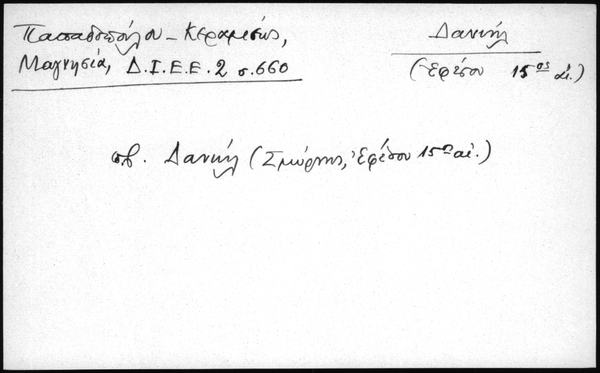 Παπαδοπούλου-Κεραμεύς,
Μαγνησία, Δ.Ι.Ε.Ε. 2 σ. 660
Δανιήλ
(Ἐφέσου 15ος αἰ.)
σβ. Δανιήλ (Σμύρνης, Ἐφέσου 15ος αἰ.)